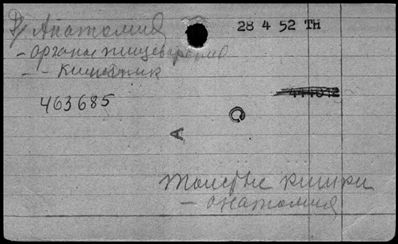 28 4 52 TH
Д/ Анатомия
- органы пищеварения
- - кишечник
463685
A
Толстые кишки
- анатомия